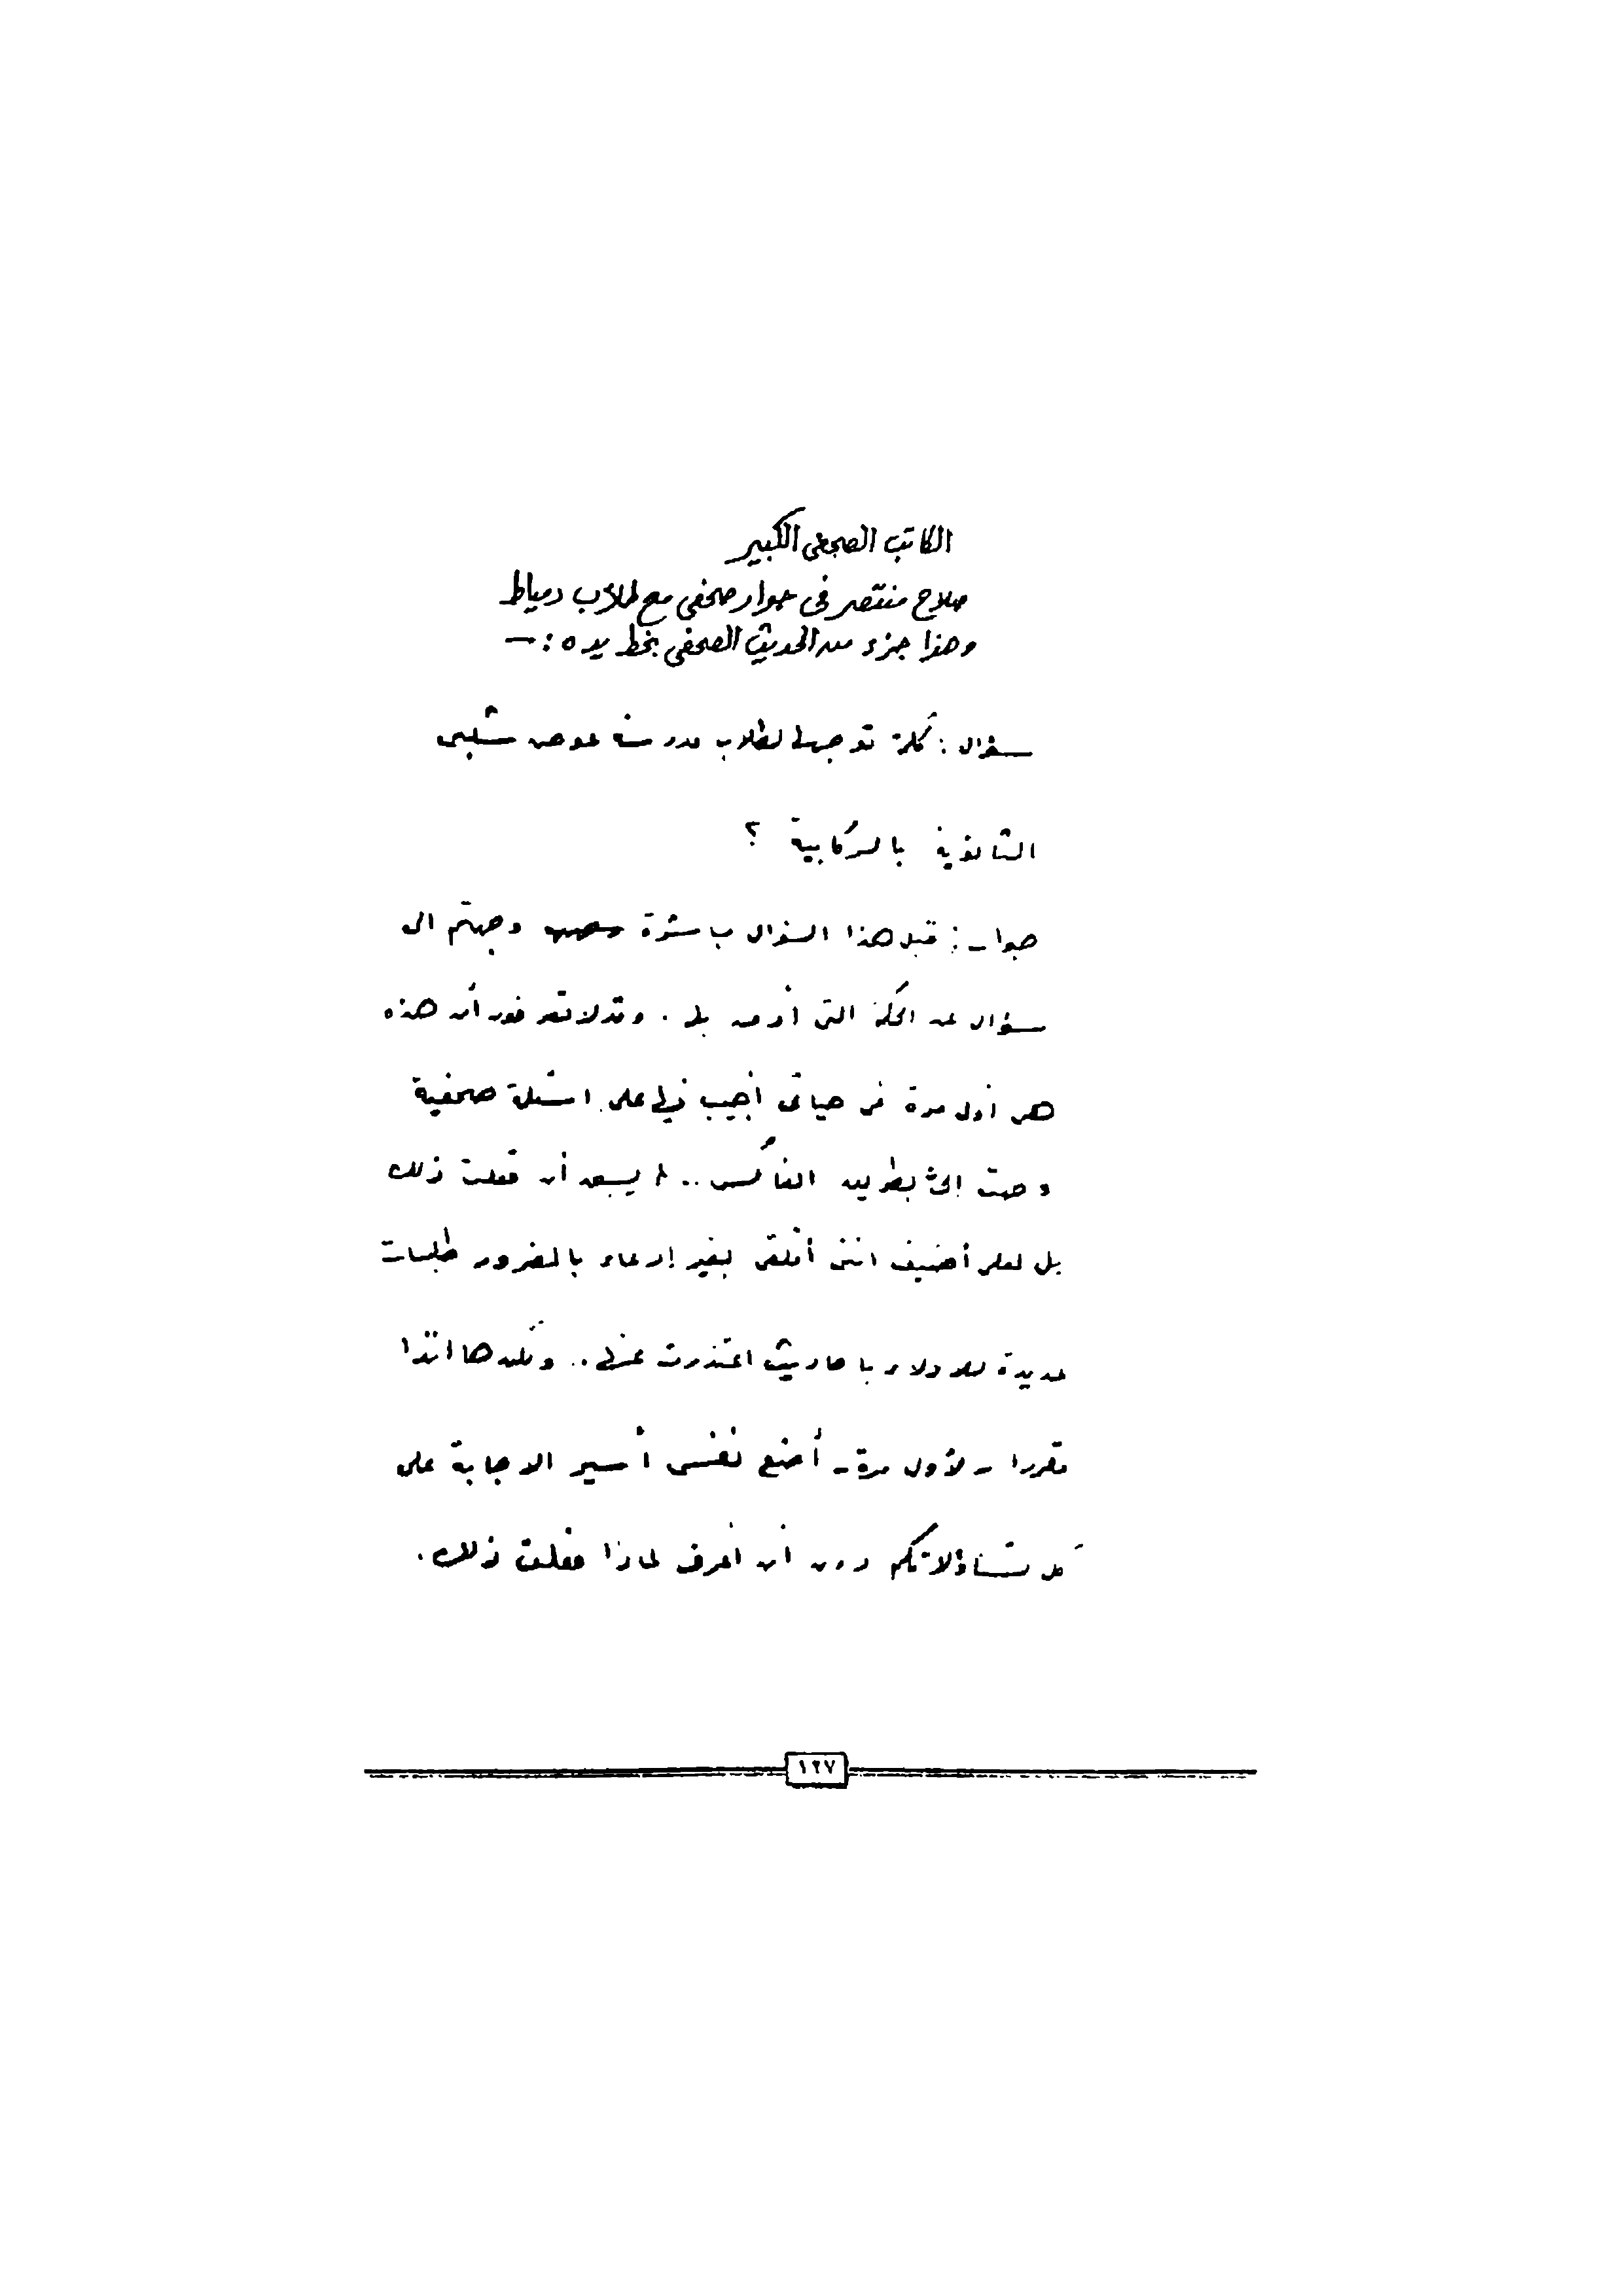 الكاتب الصحفى الكبير
صلاح منتصر فى حوار صحفى مع طلاب دمياط
وهذا جزء من الحديث الصحفى بخط يده :ـ
سؤال : كلمة توجهها لطلاب مدرسة عوض شلبى
الثانوية بالركابية ؟
جواب : قبل هذا السؤال مباشرة وجهتم الى
سؤال عن الحكمة التى أومن بها . وقد لا تعرفون أن هذه
هى أول مرة فى حياتى أجيب فيها على اسئلة صحفية
وجهت الىّ بطريق الفاكس .. لم يسبق أن فعلت ذلك
بل لعلى أضيف اننى أتلقى بغير إدعاء بالغرور طلبات
عديدة للادلاء باحاديث اعتذرت عنها .. ولكن ها انذا
مقررا - لأول مرة - أضع نفسى أسير الاجابة على
كل تساؤلاتكم دون أن أعرف لماذا فعلت ذلك .
١٢٧